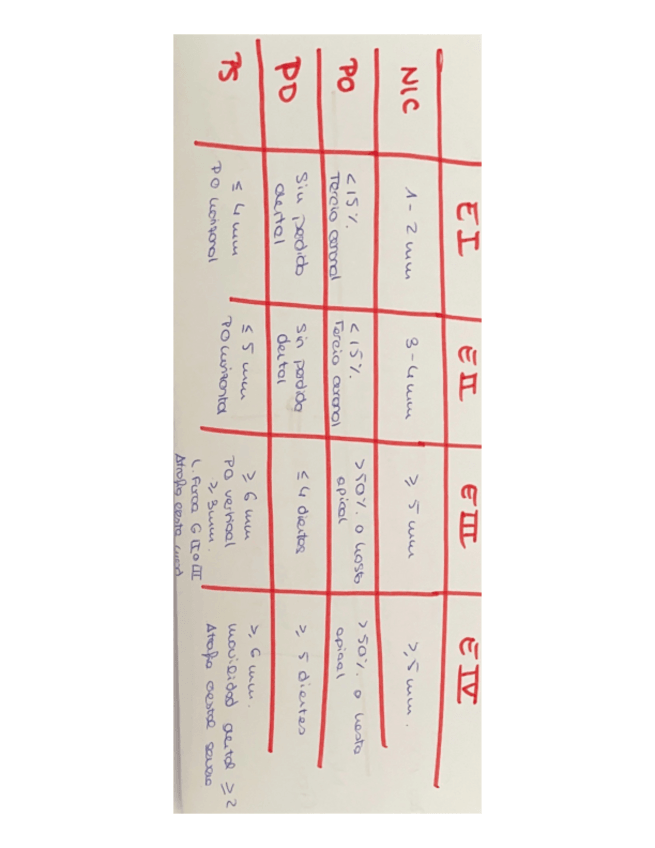 EI
EII
EIII
EIV
NIC
1-2 mm
3-4 mm
≥ 5 mm
≥ 5 mm.
PO
<15%.
Tercio coronal
<15%.
Tercio coronal
>50%. o hasta
apical
>50%. o hasta
apical
PD
Sin perdida
dental
Sin perdida
dental
≤ 4 dientes
≥ 5 dientes
PS
≤ 4 mm
PO horizontal
≤ 5 mm
PO horizontal
≥ 6 mm
PO vertical
≥ 3mm.
L. Furca G II o III
Atrofia cresta mod
≥ 6 mm.
movilidad dental ≥ 2
Atrofia crestal severa